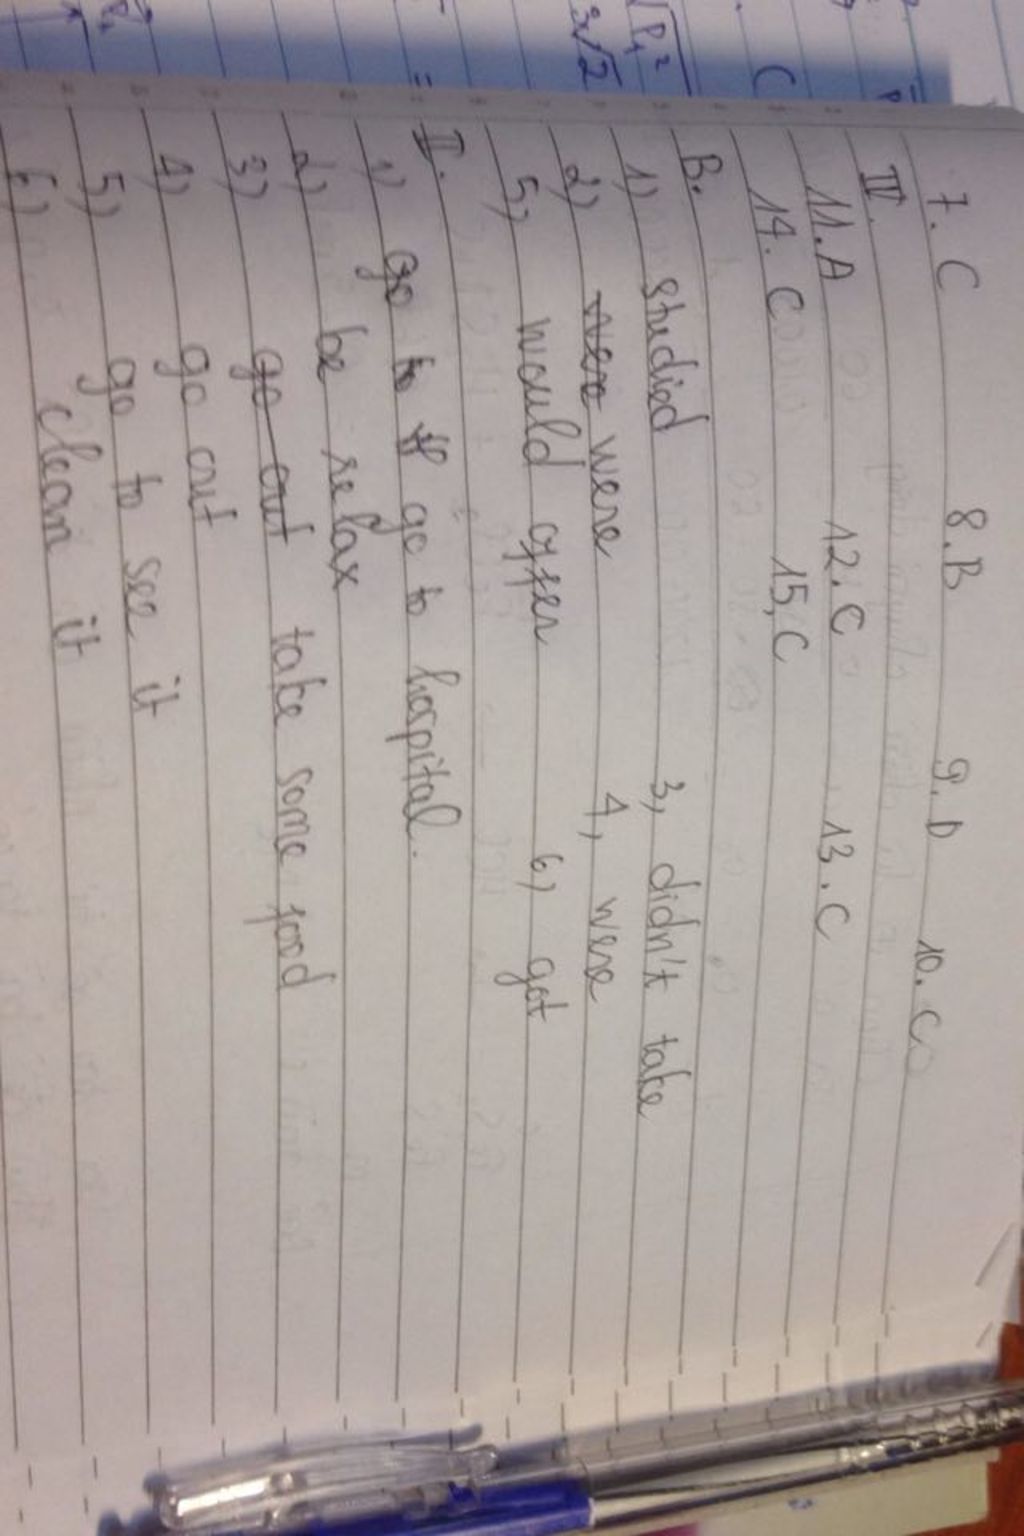 7. C 8. B 9. D 10. C
IV.
11. A 12. C 13. C
14. C 15, C
B.
1) studied 3, didn't take
2) were were 4, were
5, would offer 6) got
II.
1) go to go to hospital.
2) be relax
3) go out take some food
4) go out
5) go to see it
6) clean it
C
√P₁²
3√2
=